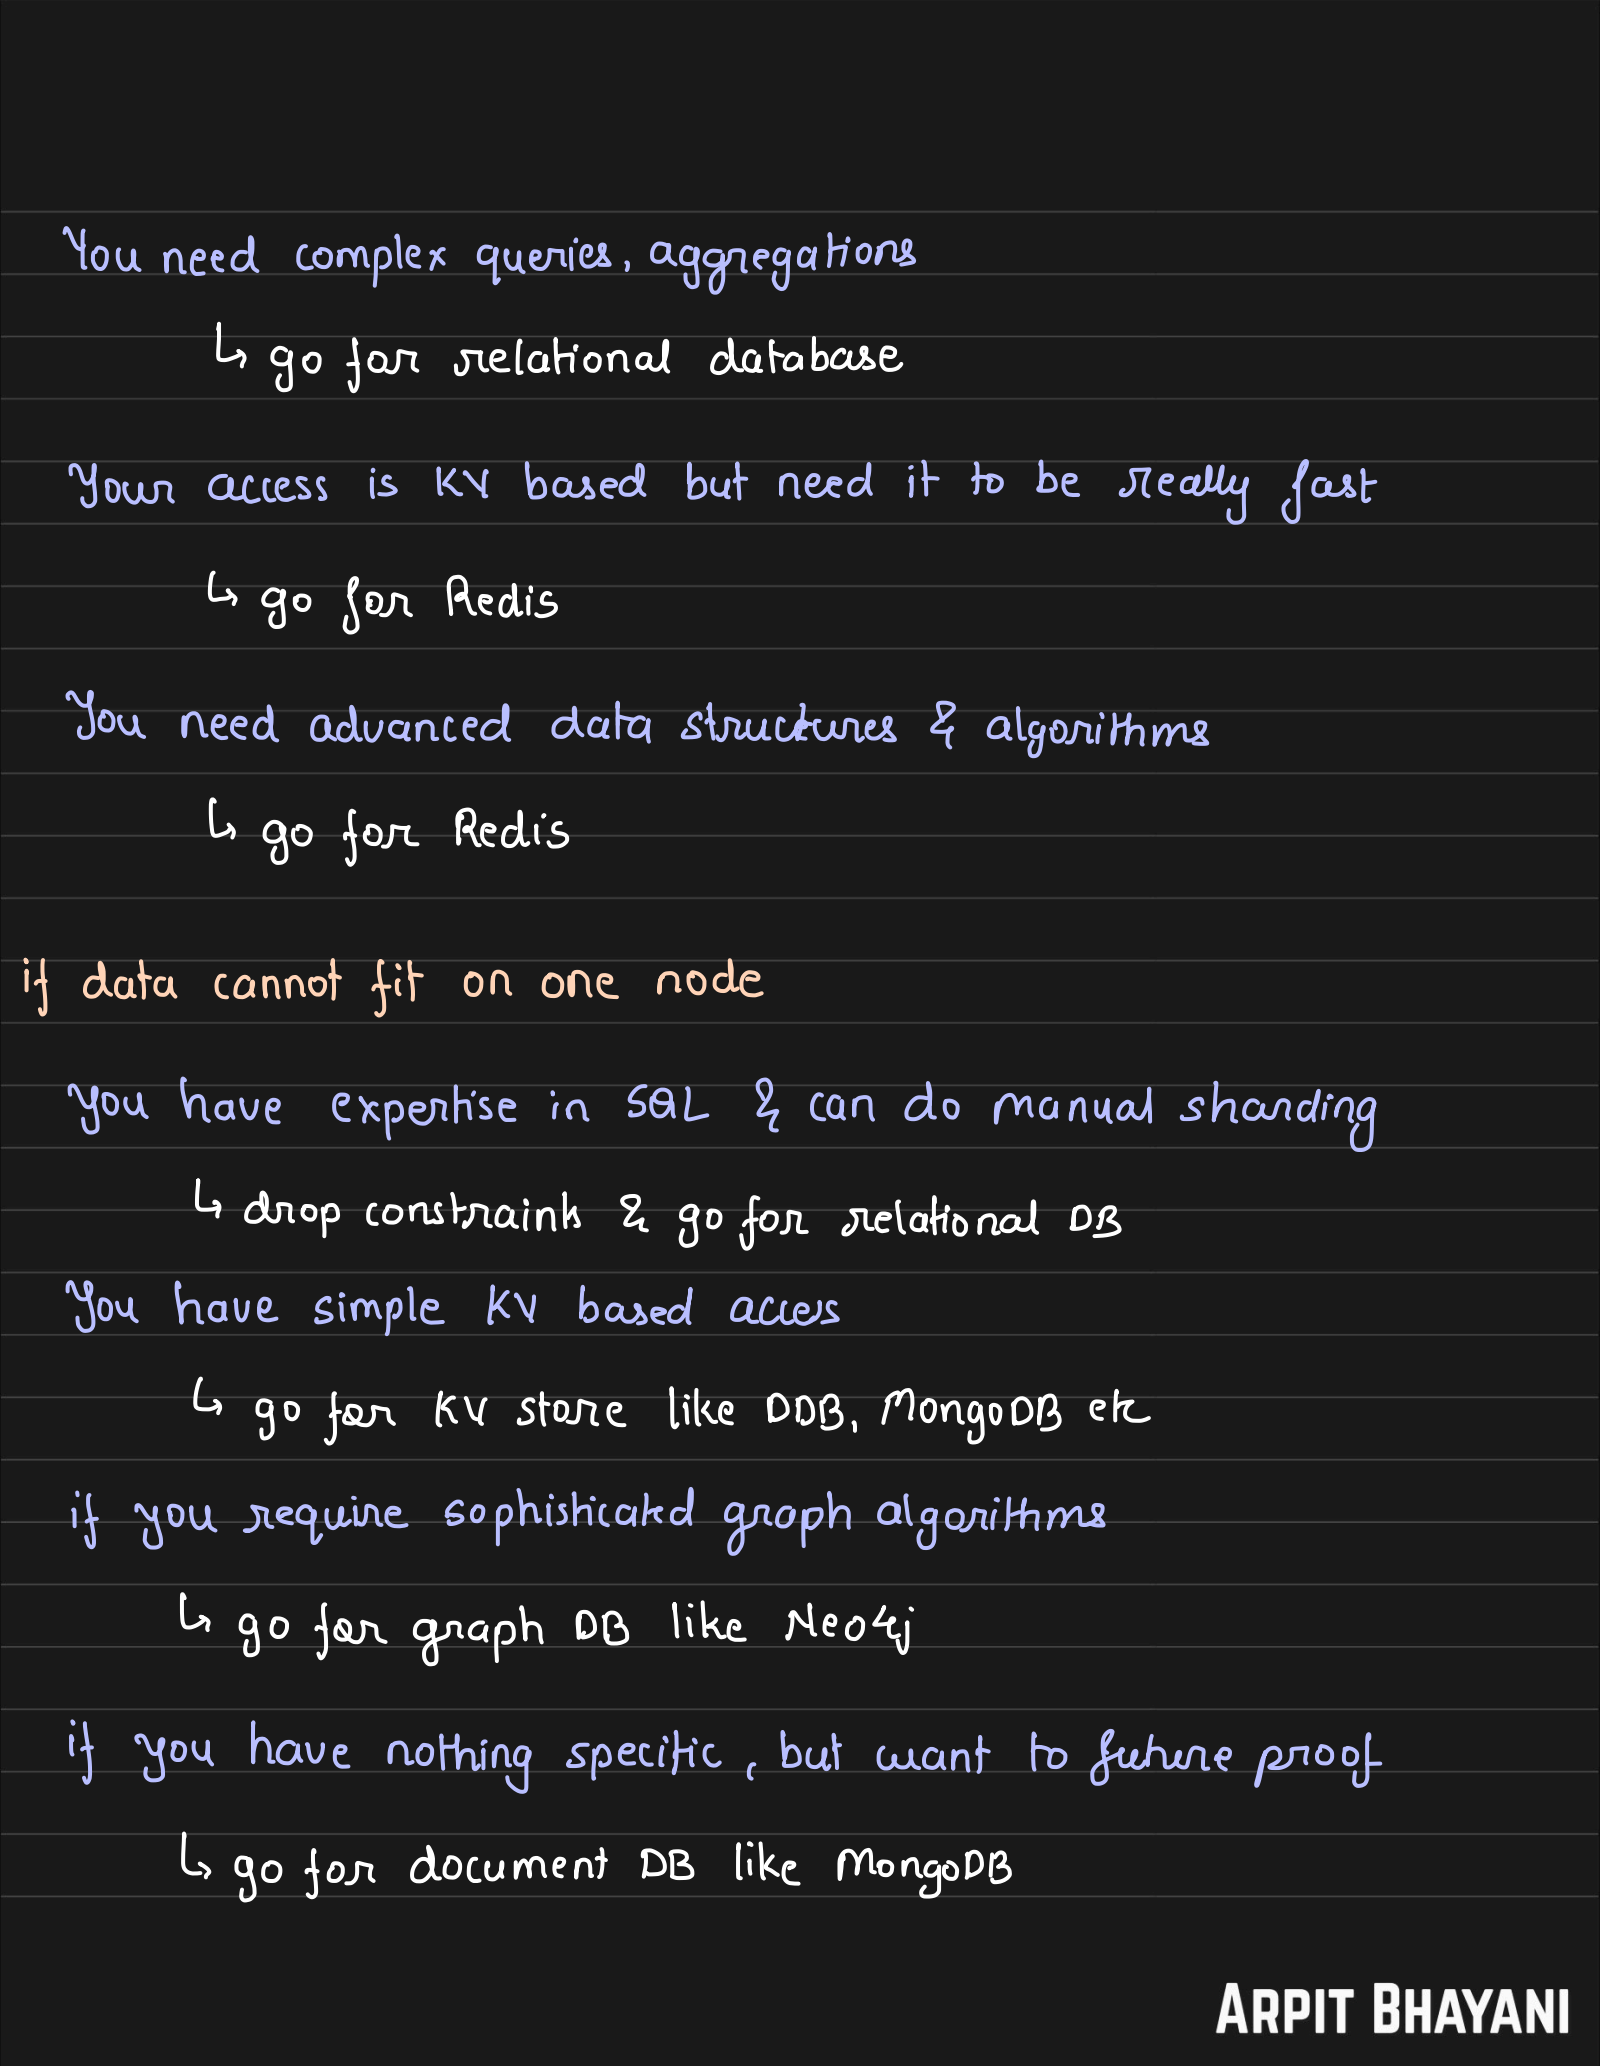 You need complex queries, aggregations
↳ go for relational database
Your access is KV based but need it to be really fast
↳ go for Redis
You need advanced data structures & algorithms
↳ go for Redis
if data cannot fit on one node
You have expertise in SQL & can do manual sharding
↳ drop constraints & go for relational DB
You have simple KV based access
↳ go for KV store like DDB, MongoDB etc
if you require sophisticated graph algorithms
↳ go for graph DB like Neo4j
if you have nothing specific, but want to future proof
↳ go for document DB like MongoDB
ARPIT BHAYANI